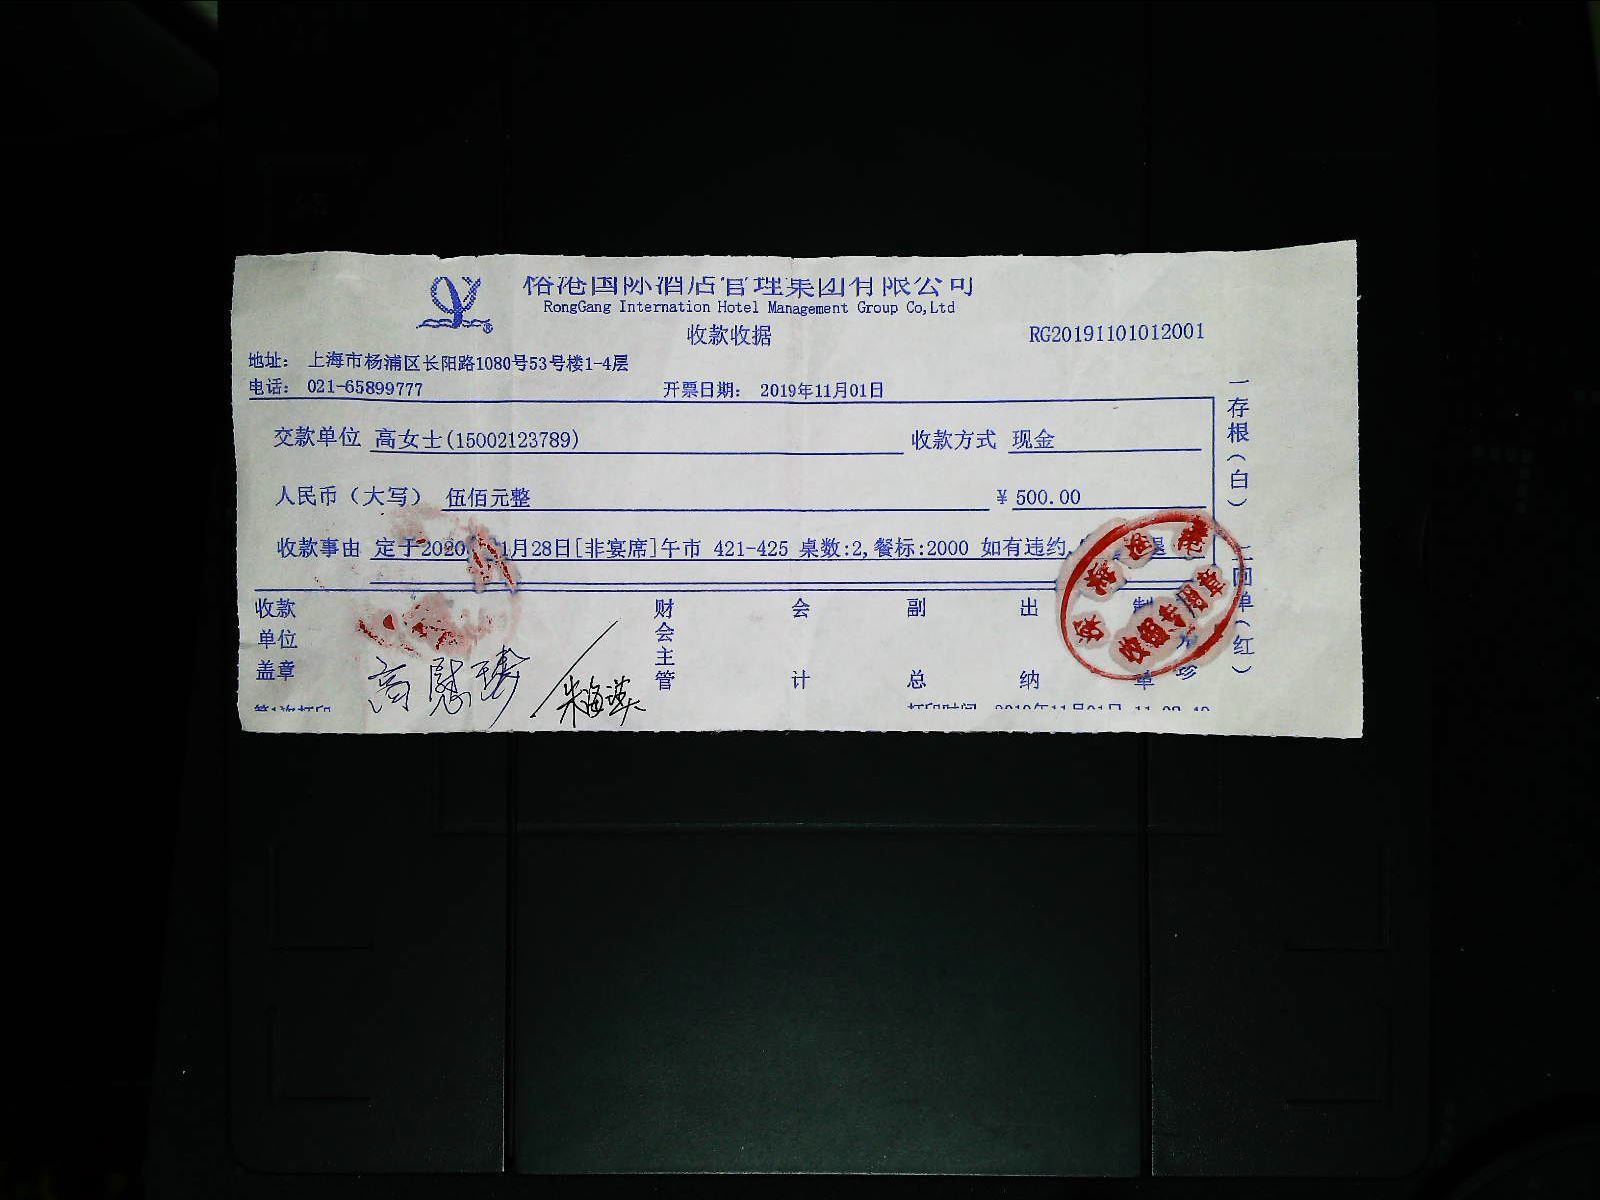 榕港国际酒店管理集团有限公司
RongGang Internation Hotel Management Group Co,Ltd
收款收据 RG20191101012001
地址: 上海市杨浦区长阳路1080号53号楼1-4层
电话: 021-65899777 开票日期: 2019年11月01日
交款单位 高女士(15002123789) 收款方式 现金
人民币（大写） 伍佰元整 ¥ 500.00
收款事由 定于2020 1月28日[非宴席]午市 421-425 桌数:2,餐标:2000 如有违约,
一存根(白) 二回单(红)
收款单位盖章 财会主管 会计 副总 出纳 制单
收银专用章
第1次打印 打印时间 2019年11月01日